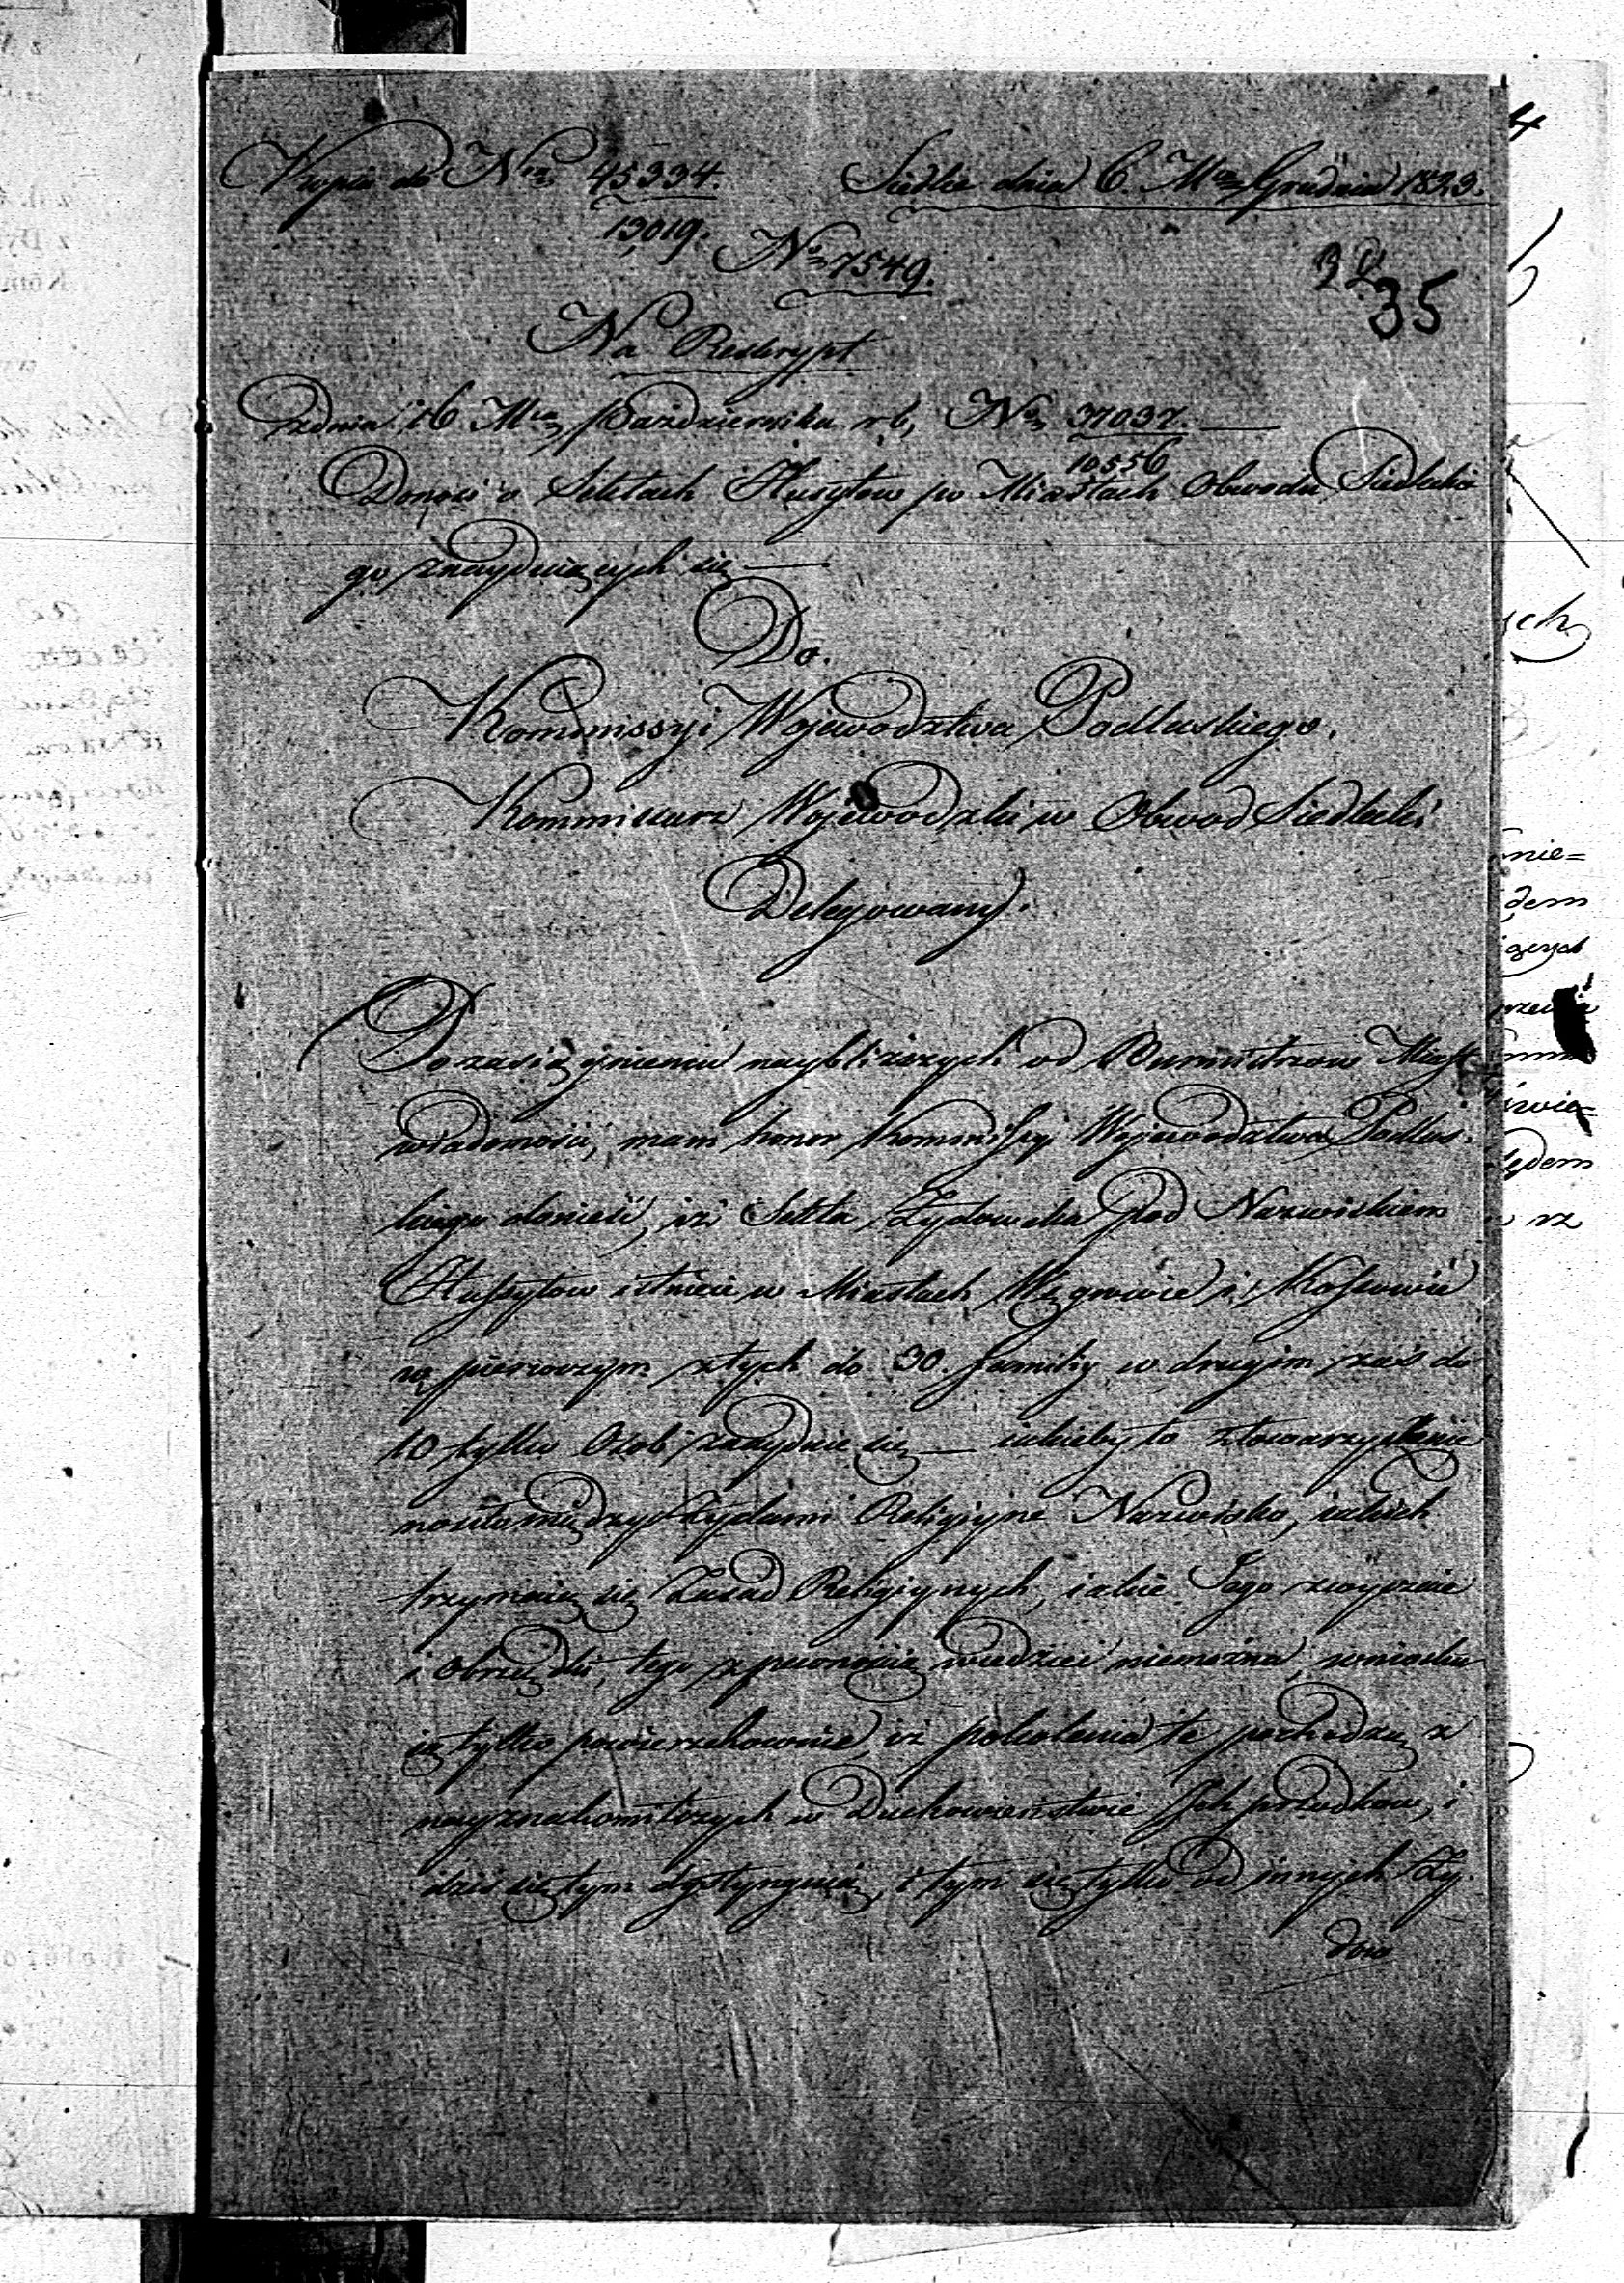 Kopia do Nru 45334. Siedlce dnia 6. Mca Grudnia 1823.
13019.
No 7549.
32
35
Na Reskrypt
Zdnia 16 Mca Października r.b, No 37037.
10556
Donosi o Sektach Husytow po Miastach Obwodu Siedleckie
go znayduiących się —
Do.
Kommissyi Województwa Podlaskiego.
Kommissarz Wojewodzki w Obwod Siedlecki
Delegowany.
Po zasiągnieniu naybliższych od Burmistrzow Miast
wiadomości, mam honor Kommissyi Województwa Podlas-
kiego donieść, iż Sekta Żydowska pod Nazwiskiem
Hussytow istnieie w Miastach Węgrowie i Kossowie
w pierwszym ztych do 30. familiy w drugim zaś do
10 tylko Osob znayduie się — iakieby to ztowarzyszenie
nosiło między Żydami Religiyne Nazwisko, iakich
trzymaią się Zasad Religiynych, iakie Jego zwyczaie
i obrządki, tego z pewnością wiedzieć niemożna, wnioshu
ią tylko powierzchownie, iż pokolenia te pochodzą z
nayznakomitszych w Duchowieństwie Jch przodkow, i
dziś się tym dystyngwią, i tym się tylko od innych Ży-
dow